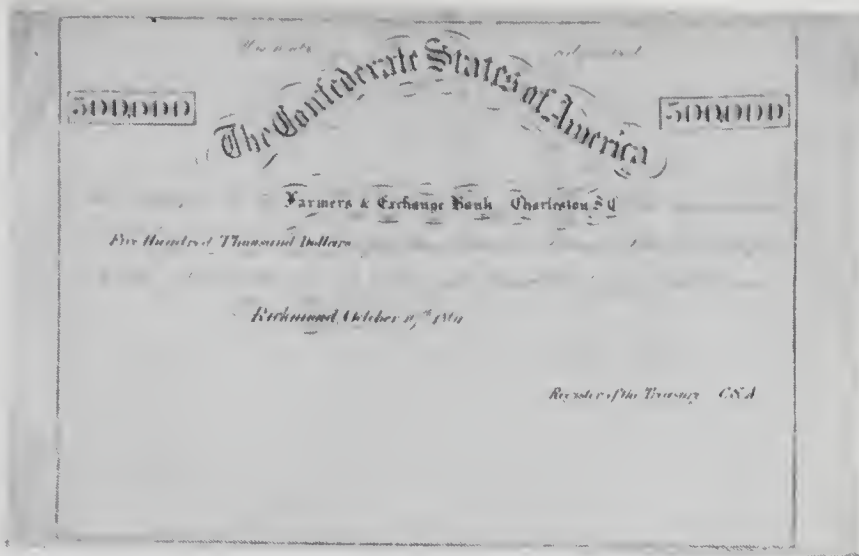 500,000
The Confederate States of America
500,000
Farmers & Exchange Bank Charleston S C
Five Hundred Thousand Dollars
Richmond, October
Register of the Treasury C.S.A